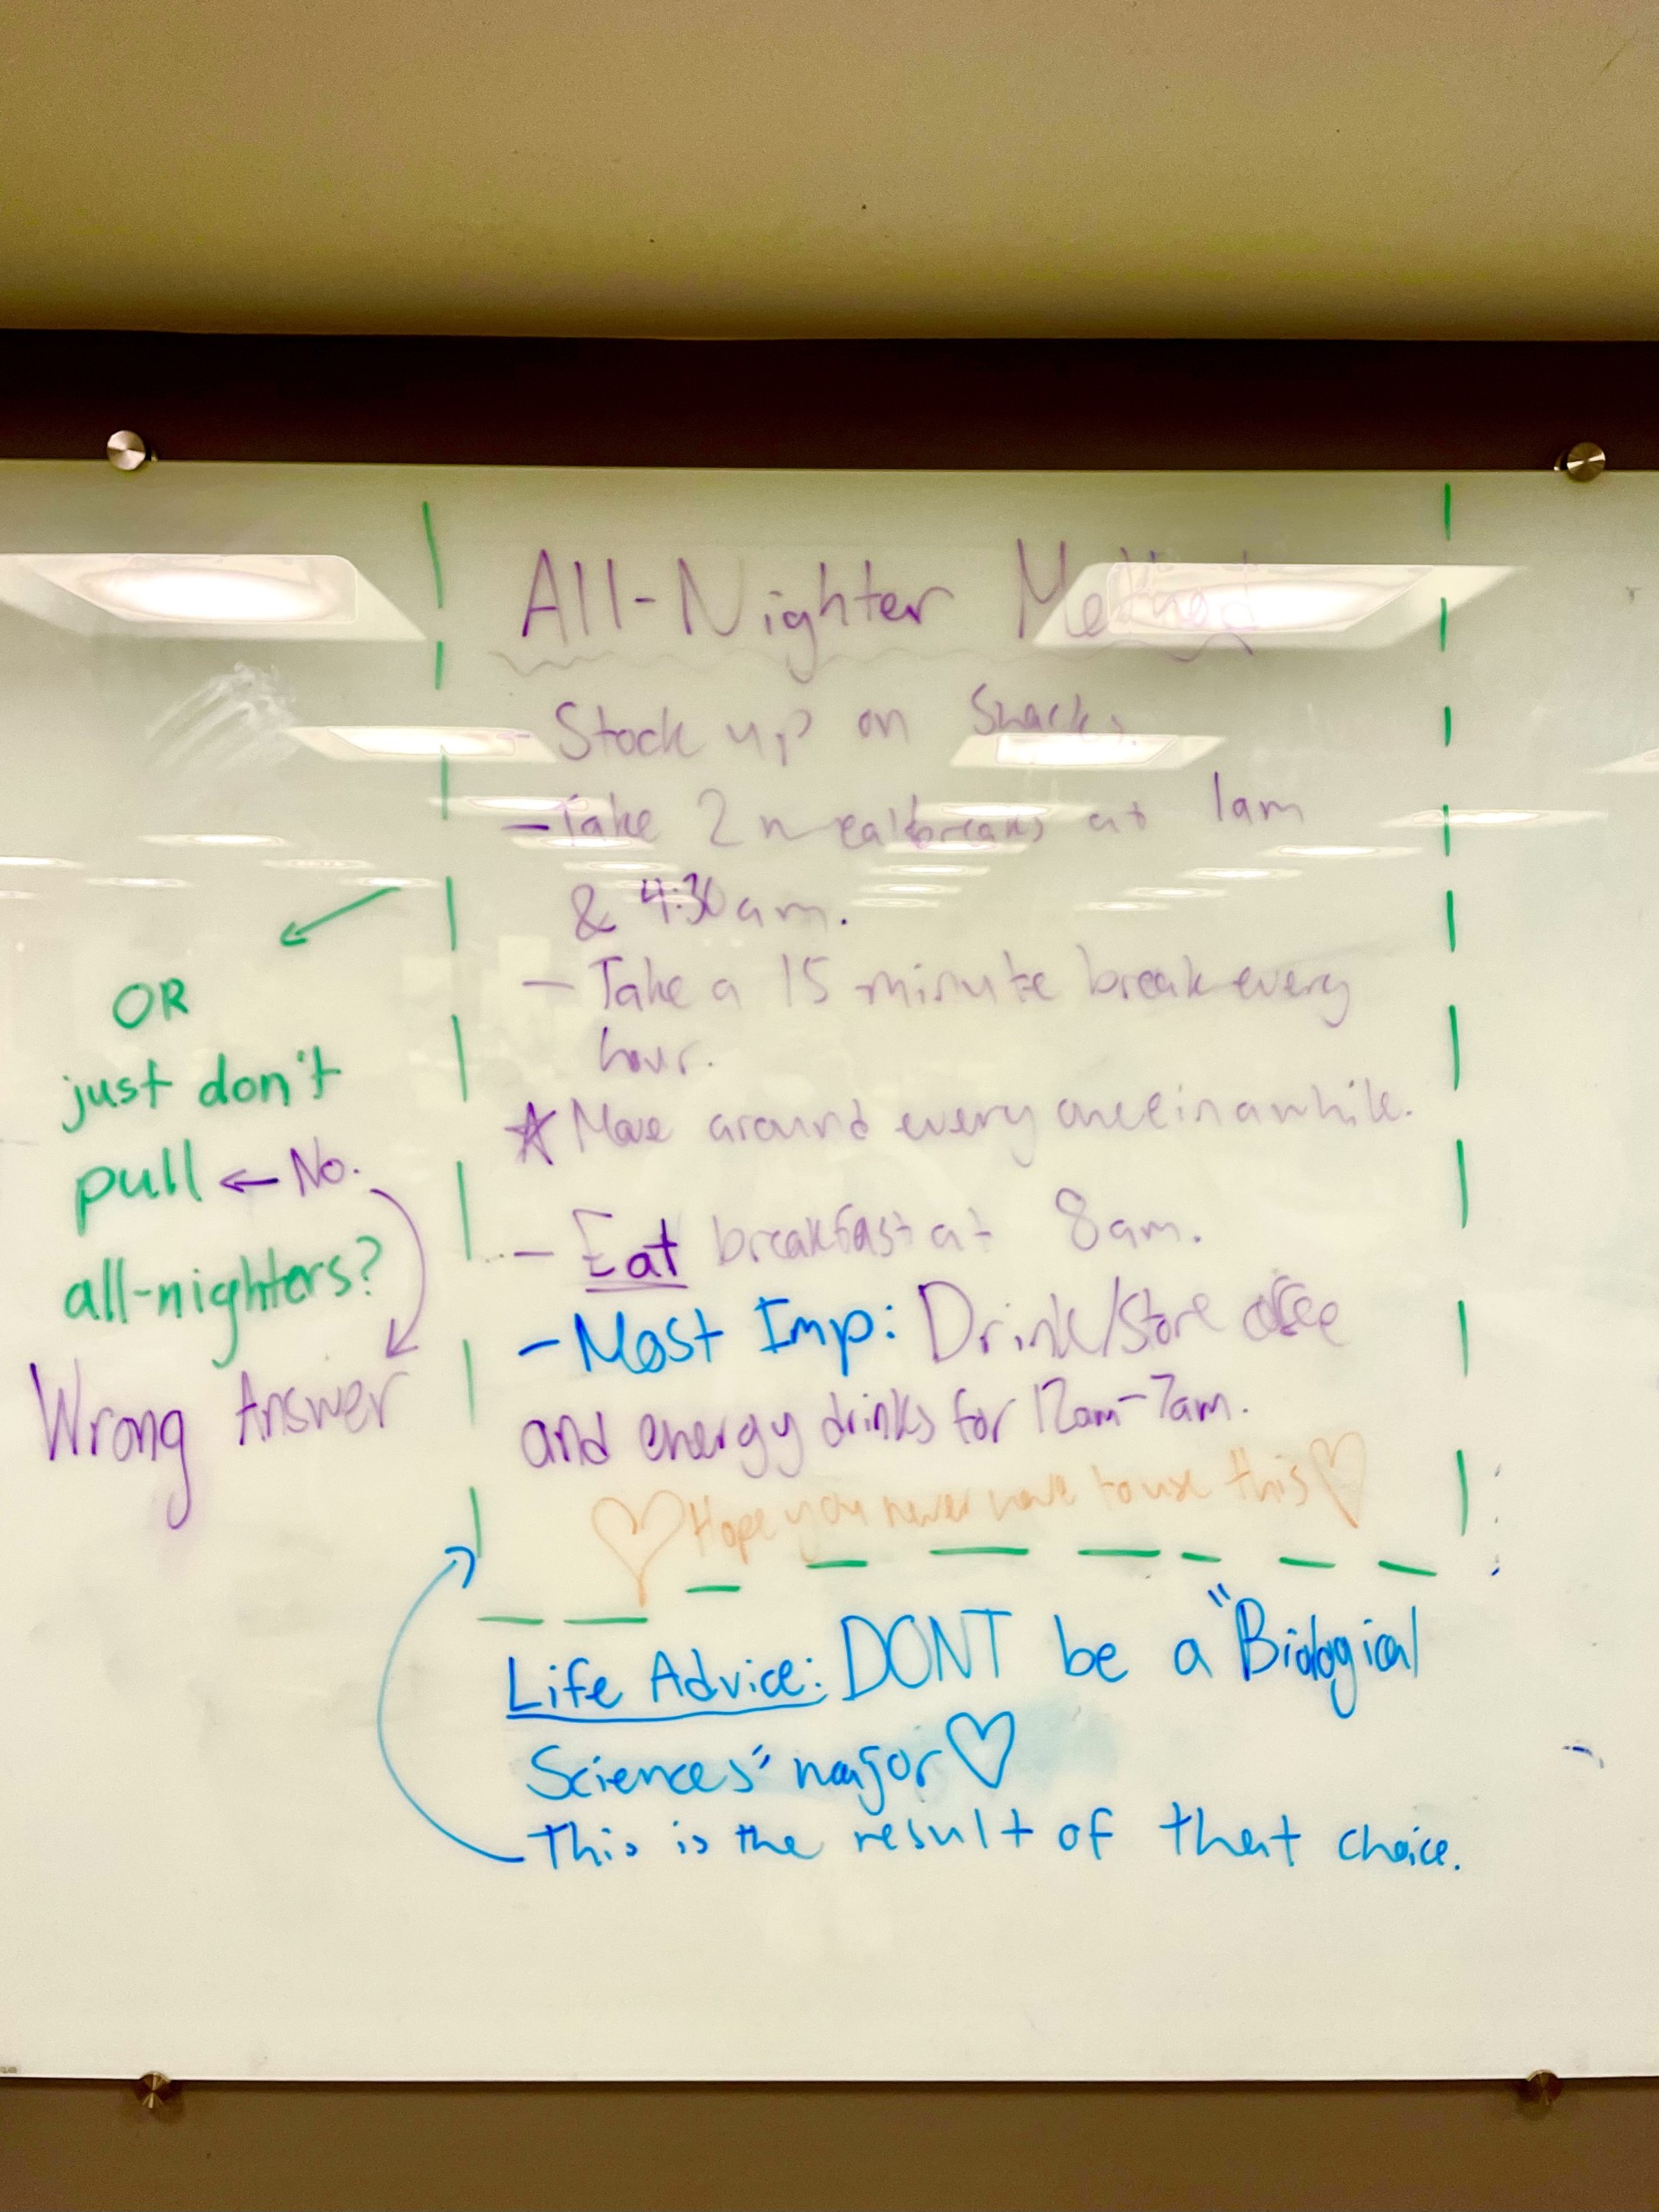 All-Nighter Method
- Stock up on Snacks.
- Take 2 mealbreaks at 1am
& 4:30am.
- Take a 15 minute break every
hour.
☆ Move around every once in a while.
- Eat breakfast at 8am.
- Most Imp: Drink/Store coffee
and energy drinks for 12am-7am.
♡ Hope you never have to use this ♡
OR
just don't
pull ← No.
all-nighters?
Wrong Answer
Life Advice: DONT be a "Biological
Sciences" major ♡
This is the result of that choice.